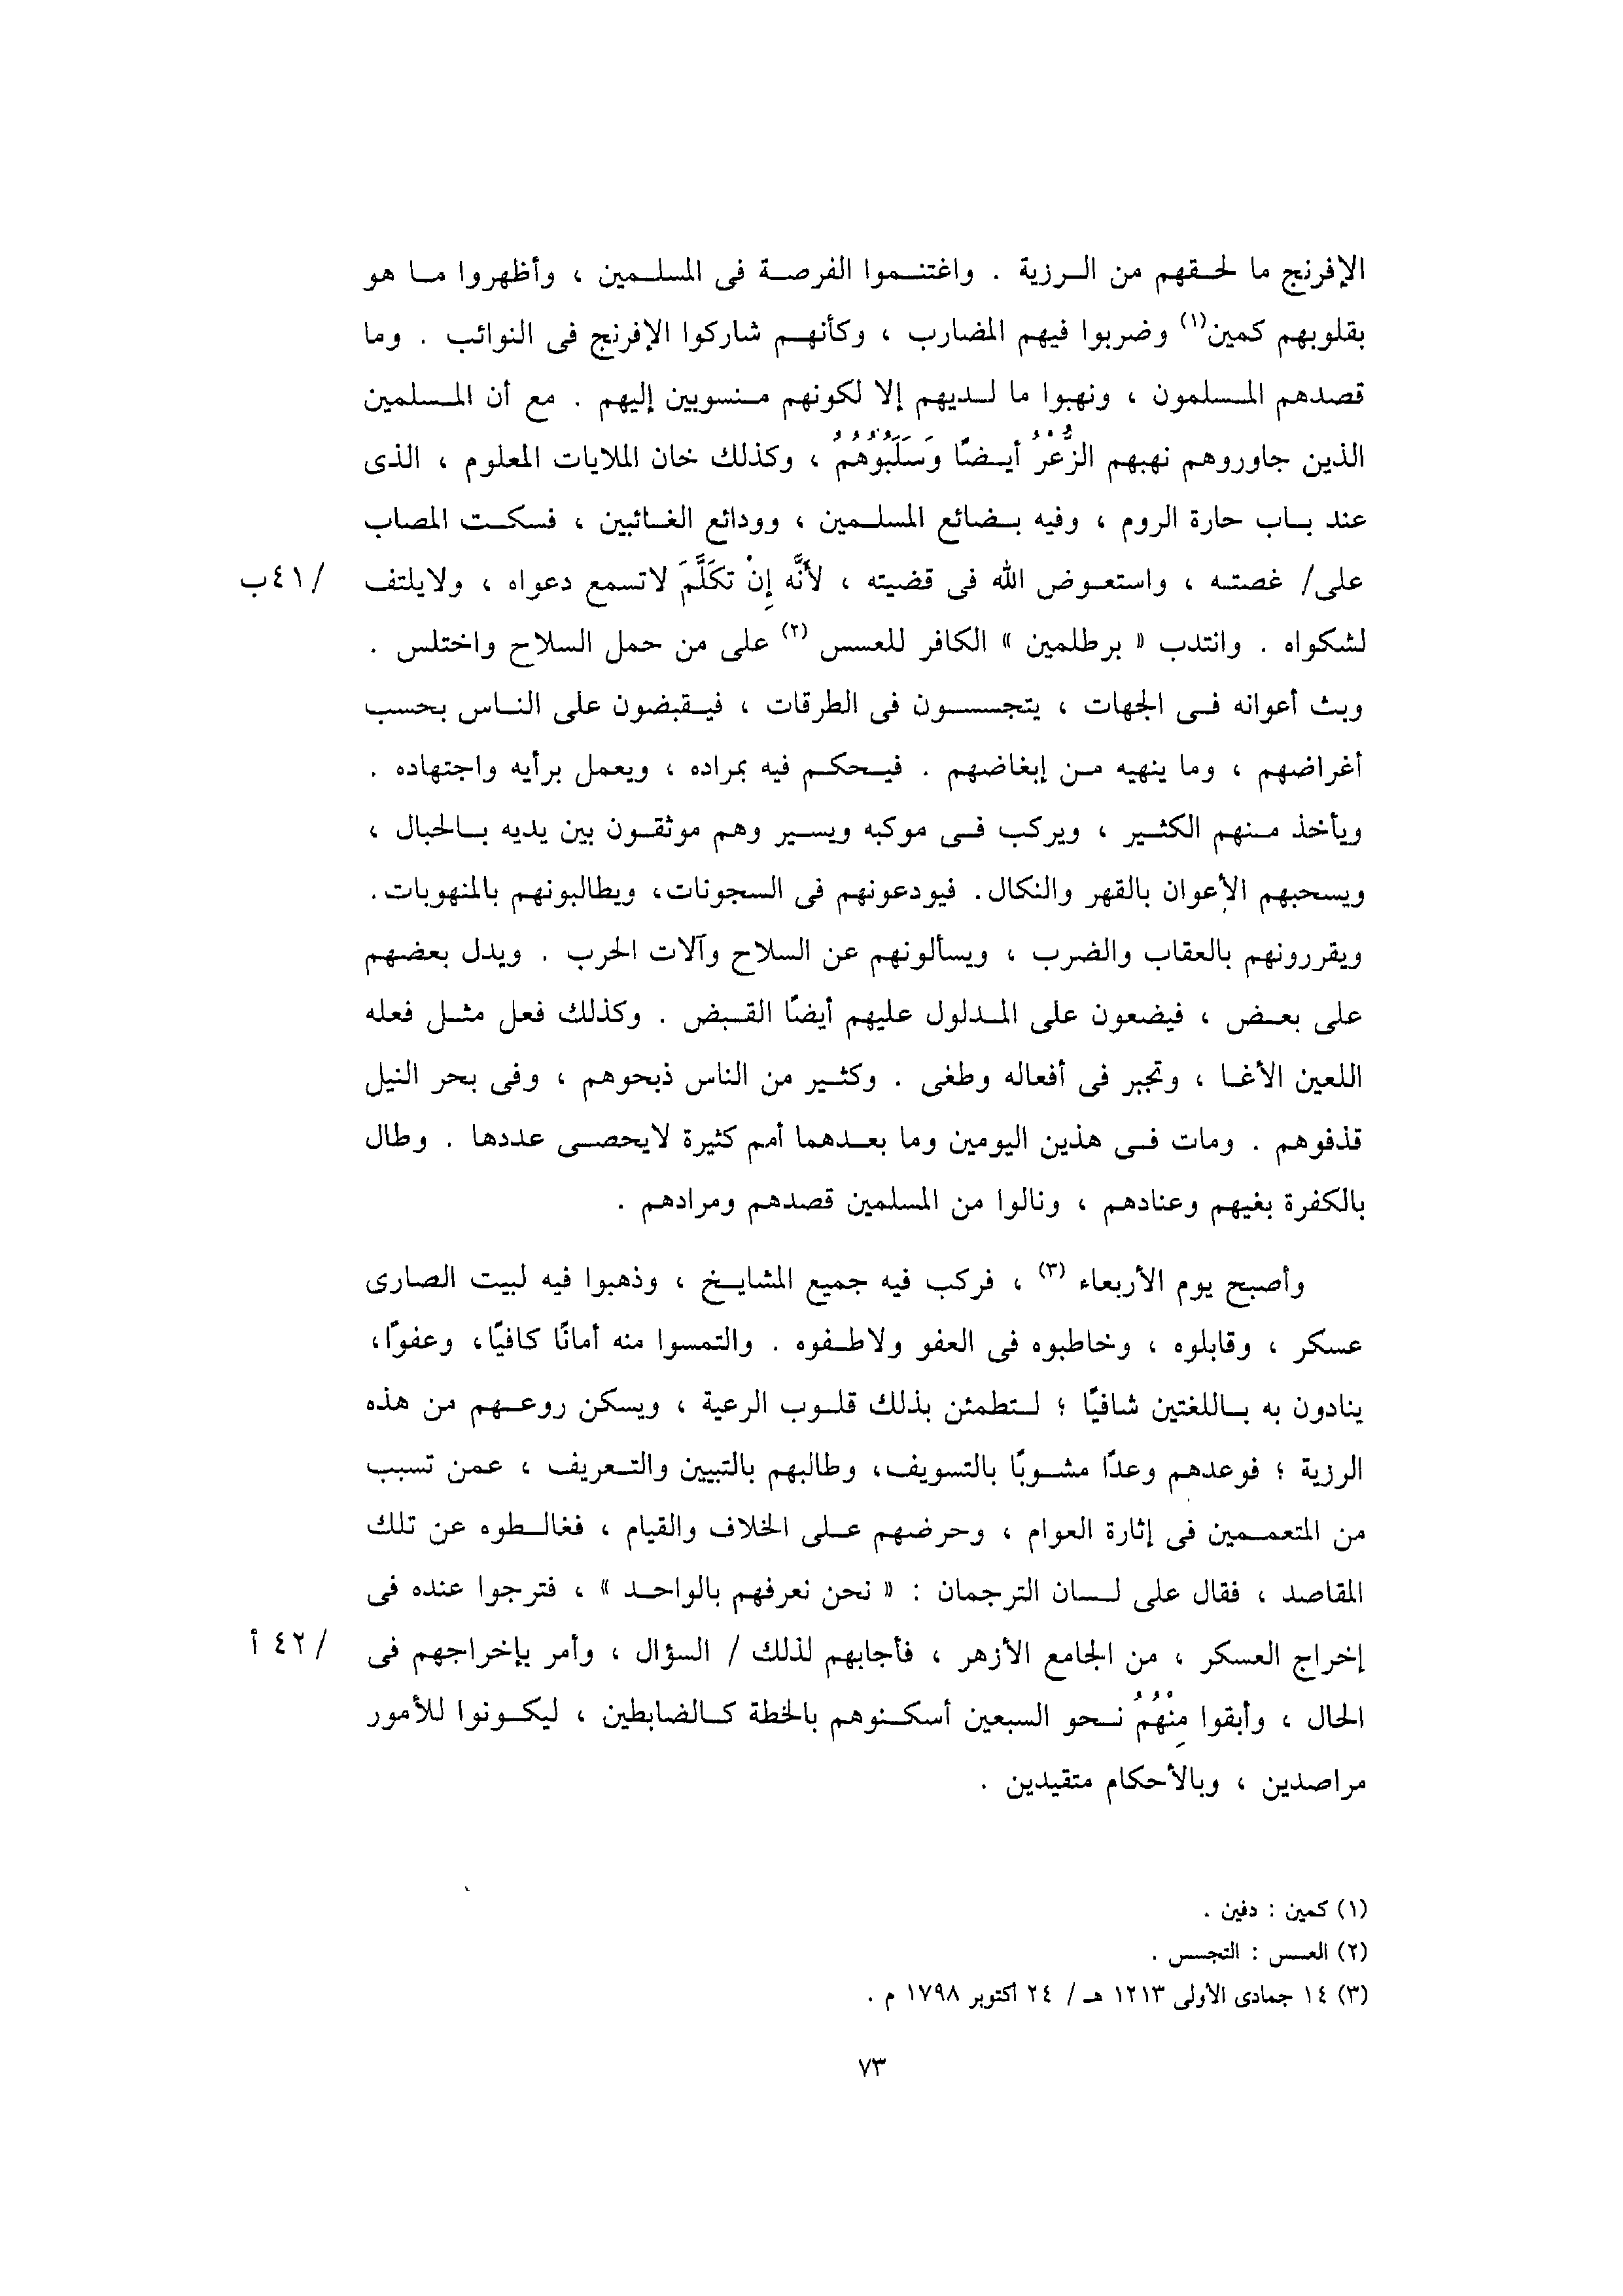 الإفرنج ما لحقهم من الرزية . واغتنموا الفرصة فى المسلمين ، وأظهروا ما هو
بقلوبهم كمين(١) وضربوا فيهم المضارب ، وكأنهم شاركوا الإفرنج فى النوائب . وما
قصدهم المسلمون ، ونهبوا ما لديهم إلا لكونهم منسوبين إليهم . مع أن المسلمين
الذين جاوروهم نهبهم الزُّعْرُ أيضًا وَسَلَبُوهُمُ ، وكذلك خان الملايات المعلوم ، الذى
عند باب حارة الروم ، وفيه بضائع المسلمين ، وودائع الغائبين ، فسكت المصاب
على/ غصته ، واستعوض الله فى قضيته ، لأَنَّه إِنْ تكَلَّمَ لاتسمع دعواه ، ولايلتف /٤١ب
لشكواه . وانتدب « برطلمين » الكافر للعسس (٢) على من حمل السلاح واختلس .
وبث أعوانه فى الجهات ، يتجسسون فى الطرقات ، فيقبضون على الناس بحسب
أغراضهم ، وما ينهيه من إبغاضهم . فيحكم فيه بمراده ، ويعمل برأيه واجتهاده .
ويأخذ منهم الكثير ، ويركب فى موكبه ويسير وهم موثقون بين يديه بالحبال ،
ويسحبهم الأعوان بالقهر والنكال. فيودعونهم فى السجونات، ويطالبونهم بالمنهوبات.
ويقررونهم بالعقاب والضرب ، ويسألونهم عن السلاح وآلات الحرب . ويدل بعضهم
على بعض ، فيضعون على المدلول عليهم أيضًا القبض . وكذلك فعل مثل فعله
اللعين الأغا ، وتجبر فى أفعاله وطغى . وكثير من الناس ذبحوهم ، وفى بحر النيل
قذفوهم . ومات فى هذين اليومين وما بعدهما أمم كثيرة لايحصى عددها . وطال
بالكفرة بغيهم وعنادهم ، ونالوا من المسلمين قصدهم ومرادهم .
وأصبح يوم الأربعاء (٣) ، فركب فيه جميع المشايخ ، وذهبوا فيه لبيت الصارى
عسكر ، وقابلوه ، وخاطبوه فى العفو ولاطفوه . والتمسوا منه أمانًا كافيًا، وعفوًا،
ينادون به باللغتين شافيًا ؛ لتطمئن بذلك قلوب الرعية ، ويسكن روعهم من هذه
الرزية ؛ فوعدهم وعدًا مشوبًا بالتسويف، وطالبهم بالتبيين والتعريف ، عمن تسبب
من المتعممين فى إثارة العوام ، وحرضهم على الخلاف والقيام ، فغالطوه عن تلك
المقاصد ، فقال على لسان الترجمان : « نحن نعرفهم بالواحد » ، فترجوا عنده فى
إخراج العسكر ، من الجامع الأزهر ، فأجابهم لذلك / السؤال ، وأمر بإخراجهم فى /٤٢ أ
الحال ، وأبقوا مِنْهُمُ نحو السبعين أسكنوهم بالخطة كالضابطين ، ليكونوا للأمور
مراصدين ، وبالأحكام متقيدين .
(١) كمين : دفين .
(٢) العسس : التجسس .
(٣) ١٤ جمادى الأولى ١٢١٣ هـ / ٢٤ أكتوبر ١٧٩٨ م .
٧٣